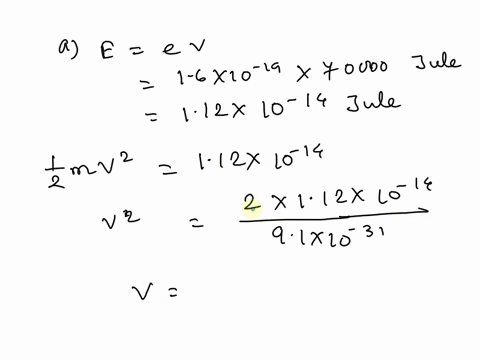 a) E = e V
= 1.6 × 10^-19 × 70000 Jule
= 1.12 × 10^-14 Jule
1/2 m V^2 = 1.12 × 10^-14
V^2 = 2 × 1.12 × 10^-14 / 9.1 × 10^-31
V =